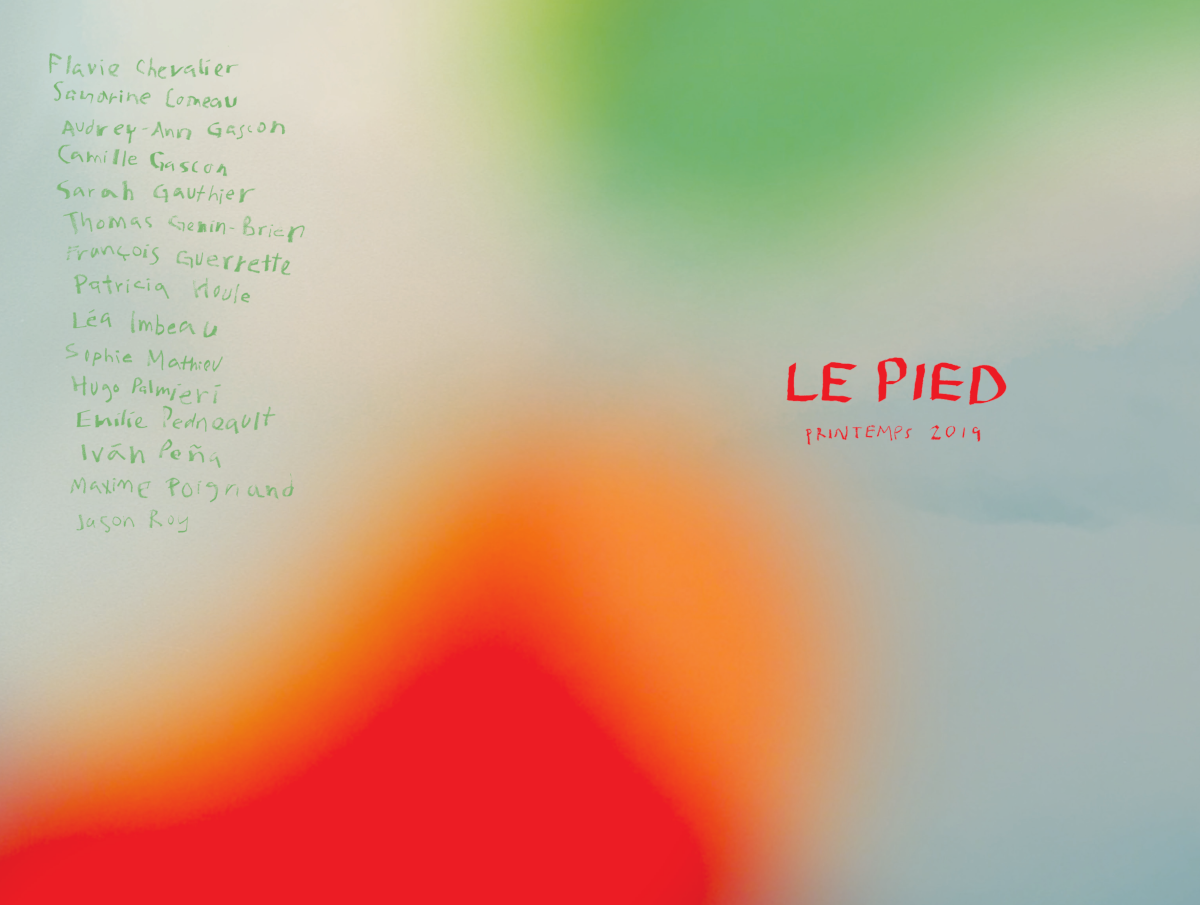 Flavie Chevalier
Sandrine Comeau
Audrey-Ann Gascon
Camille Gascon
Sarah Gauthier
Thomas Genin-Brien
François Guerrette
Patricia Houle
Léa Imbeau
Sophie Mathieu
Hugo Palmieri
Emilie Pedneault
Iván Peña
Maxime Poignand
Jason Roy
LE PIED
PRINTEMPS 2019